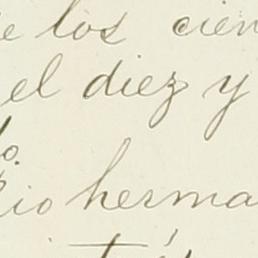 e los cien
el diez y
o.
io herma